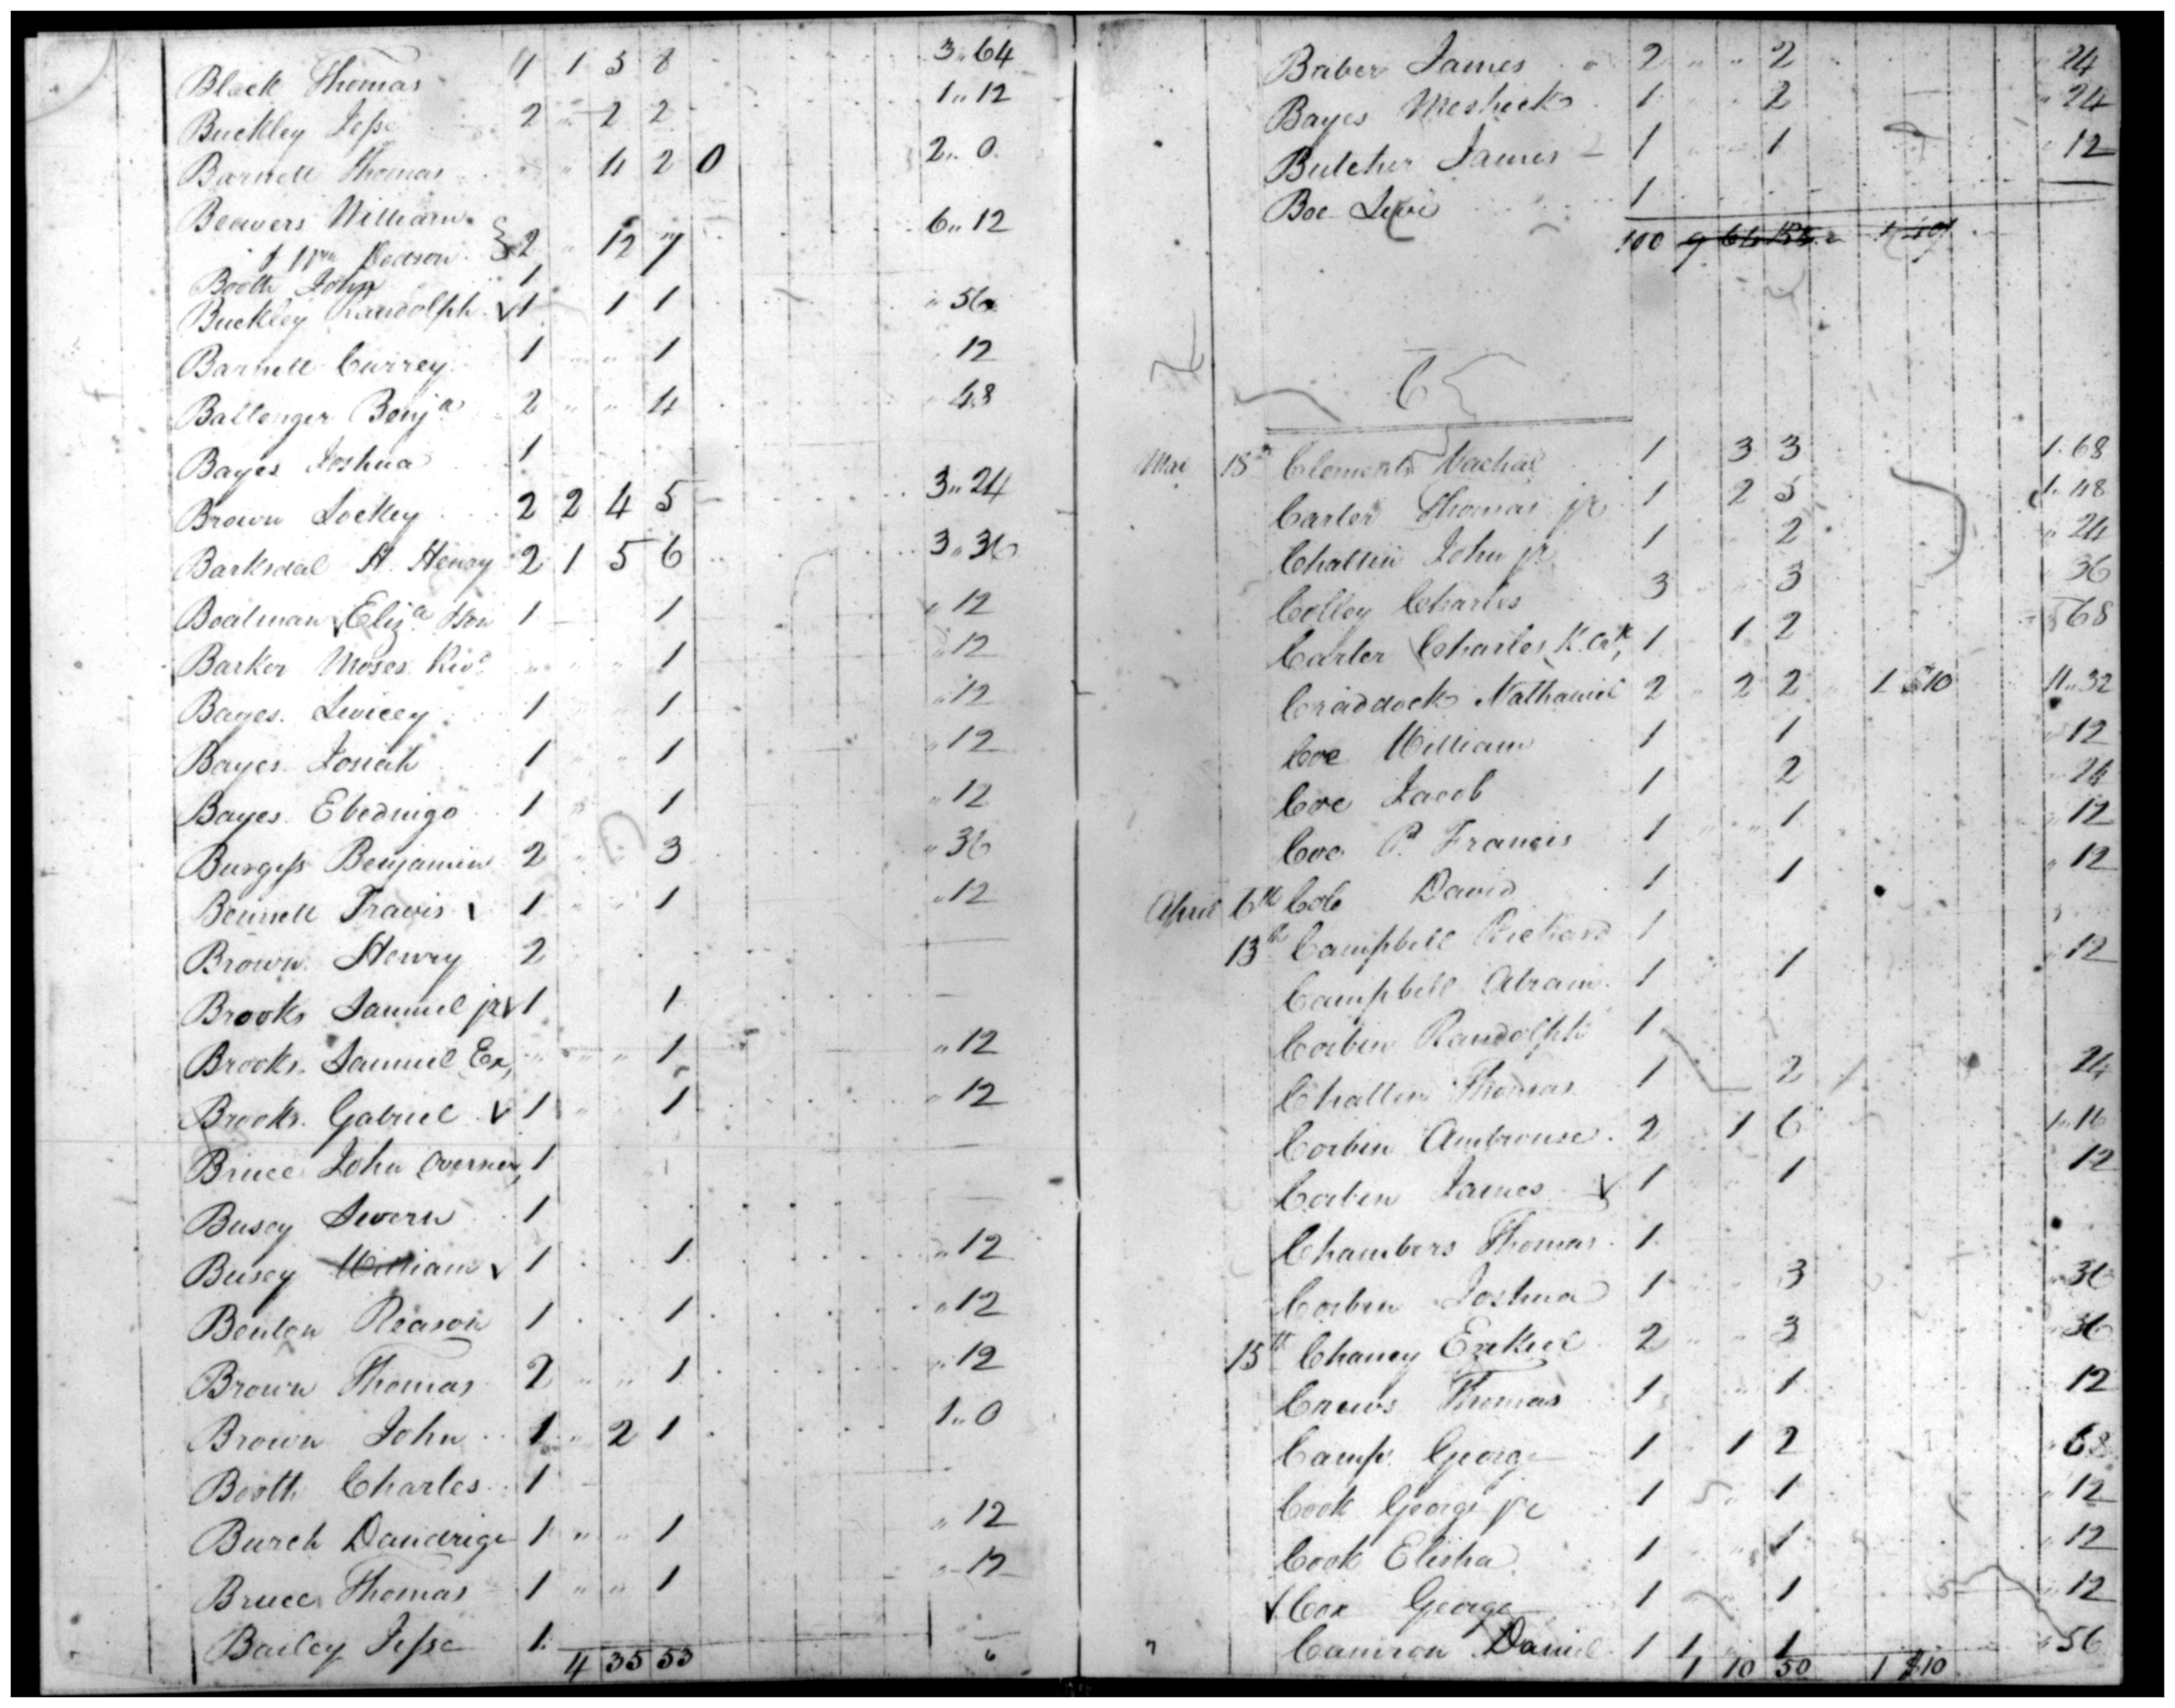 Black Thomas 1 1 5 8 3..64
Buckley Jesse 2 " 2 2 1..12
Barnett Thomas " " 4 2 0 2.. 0
Beavers William
Dodson } 2 " 12 7 6..12
Booth John 1
Buckley Randolph √ 1 1 1 " 56
Barnett Currey 1 " " 1 12
Ballenger Benja 2 " " 4 48
Bayes Joshua 1
Brown Lockey 2 2 4 5 3..24
Barksdal H. Henry 2 1 5 6 3..36
Boatman Eliza Son 1 1 " 12
Barker Moses Rivr " " " 1 " 12
Bayes. Levicey 1 " " 1 " 12
Bayes. Josiah 1 " " 1 " 12
Bayes. Ebednigo 1 " 1 " 12
Burgess Benjamin 2 " " 3 " 36
Bennett Travis √ 1 " " 1 " 12
Brown. Henry 2
Brooks Samuel jr √ 1 1
Brooks. Samuel Ex, " " " 1 " 12
Brooks. Gabriel √ 1 " " 1 " 12
Bruce John Overseer, 1
Busey Severn 1
Busey William √ 1 1 " 12
Benton Reason 1 1 " 12
Brown Thomas 2 " " 1 " 12
Brown John 1 " 2 1 1.. 0
Booth Charles 1
Burch Dandrige 1 " " 1 " 12
Bruce Thomas 1 " " 1 " 12
Bailey Jesse 1
4 35 53
Baber James 2 " " 2 " 24
Bayes Mesheck 1 2 " 24
Butcher James 1 1 " 12
Boe Levi 1
100 9
C
Mar 18th Clements Vachal 1 3 3 1. 68
Carter Thomas jr 1 2 5 1. 48
Chattin John jr 1 2 " 24
Colley Charles 3 " " 3 36
Carter Charles K. Crk, 1 1 2 68
Craddock Nathaniel 2 " 2 2 " 1 $10 11..32
Coe William 1 1 " 12
Coe Jacob 1 2 24
Coe P. Francis 1 " " 1 " 12
April 6th Cob David 1 1 " 12
13th Campbell Richard 1
Campbell Abram 1 1 " 12
Corbin Randolph 1
Chattin Thomas 1 2 24
Corbin Ambrouse 2 1 6 1..16
Corbin James √ 1 " " 1 12
Chambers Thomas 1
Corbin Joshua 1 " 3 " 36
15th Chaney Ezekiel 2 " " 3 " 36
Crews Thomas 1 " 1 12
Camp George 1 " 1 2 " 68
Cook George jr 1 " 1 " 12
Cook Elisha 1 " 1 " 12
√ Cox George 1 1 " 12
Camron Daniel 1 1 " 1 " 56
1 10 50 1 $10